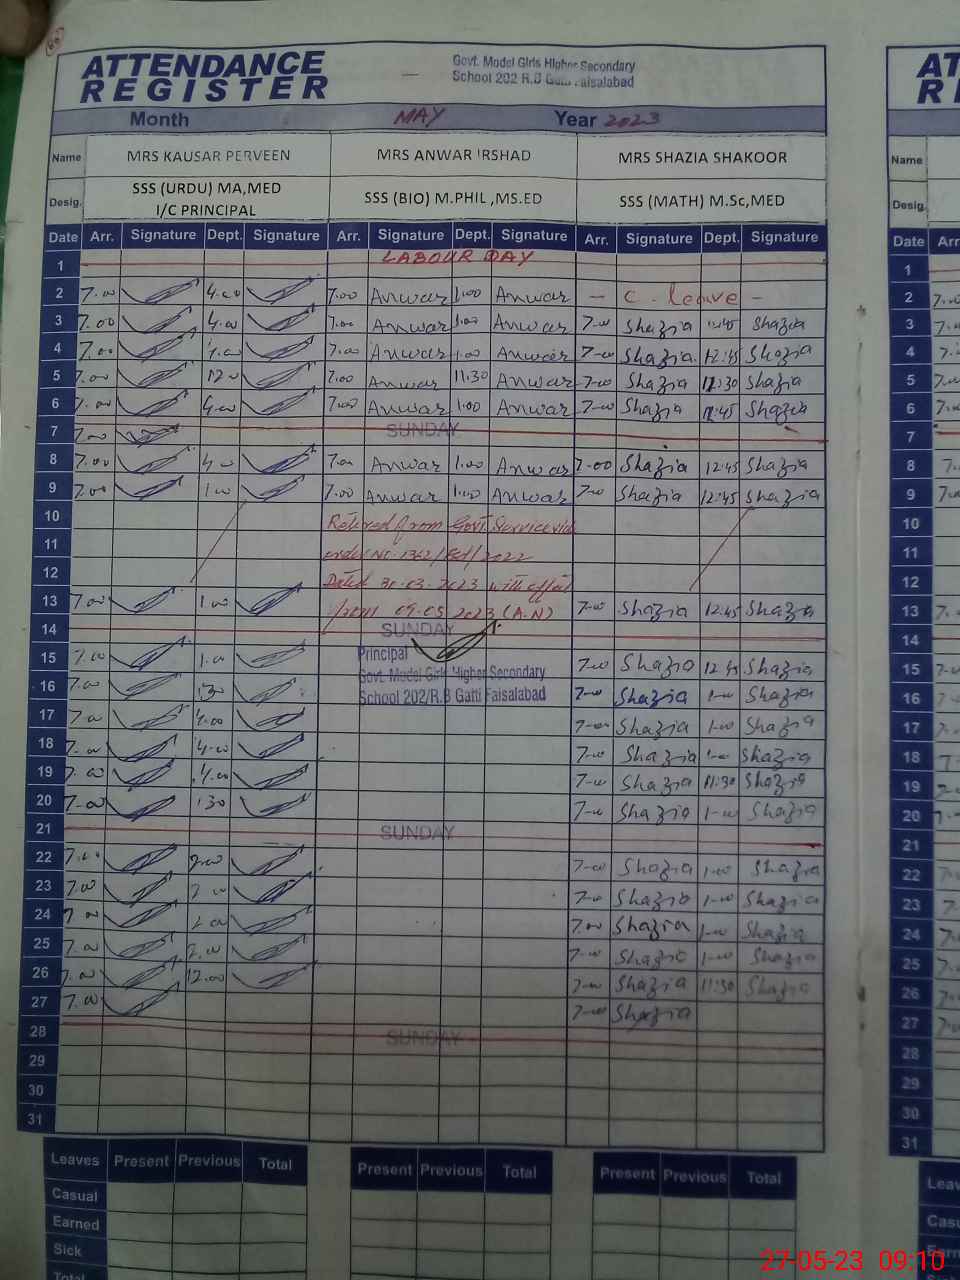 66
ATTENDANCE
REGISTER
Govt. Model Girls Higher Secondary
School 202 R.B Gatti Faisalabad
Month MAY Year 2023
Name MRS KAUSAR PERVEEN MRS ANWAR IRSHAD MRS SHAZIA SHAKOOR
Desig. SSS (URDU) MA,MED I/C PRINCIPAL SSS (BIO) M.PHIL ,MS.ED SSS (MATH) M.Sc,MED
Date Arr. Signature Dept. Signature Arr. Signature Dept. Signature Arr. Signature Dept. Signature
1 LABOUR DAY
2 7.00 4.00 7.00 Anwar 1.00 Anwar - C. leave -
3 7.00 4.00 7.00 Anwar 1.00 Anwar 7-00 Shazia 12:45 Shazia
4 7.00 4.00 7.00 Anwar 1.00 Anwar 7-00 Shazia 12:45 Shazia
5 7.00 7.00 Anwar 11.30 Anwar 7-00 Shazia 11:30 Shazia
6 7.00 4.00 7.00 Anwar 1.00 Anwar 7-00 Shazia 12:45 Shazia
7 7.00 SUNDAY
8 7.00 4.00 7.00 Anwar 1.00 Anwar 7-00 Shazia 12:45 Shazia
9 7.00 1.00 7.00 Anwar 1.00 Anwar 7-00 Shazia 12:45 Shazia
10 Retired from Govt. Service vide
11 order No. 1362/ /2022
12 Dated 30.03.2023 with effect
13 7.00 1.00 from 09.05.2023 (A.N) 7-00 Shazia 12.45 Shazia
14 SUNDAY
15 7.00 1.00 Principal 7-00 Shazia 12.45 Shazia
Govt. Model Girls Higher Secondary
16 7.00 1.30 School 202/R.B Gatti Faisalabad 7-00 Shazia 1-00 Shazia
17 7.00 4.00 7-00 Shazia 1-00 Shazia
18 7.00 4.00 7-00 Shazia 1-00 Shazia
19 7.00 4.00 7-00 Shazia 11:30 Shazia
20 7-00 1.30 7-00 Shazia 1-00 Shazia
21 SUNDAY
22 7.00 2.00 7-00 Shazia 1-00 Shazia
23 7.00 2.00 7-00 Shazia 1-00 Shazia
24 7.00 2.00 7.00 Shazia 1-00 Shazia
25 7.00 2.00 7-00 Shazia 1-00 Shazia
26 7.00 12.00 7-00 Shazia 11:30 Shazia
27 7.00 7-00 Shazia
28 SUNDAY
29
30
31
Leaves Present Previous Total Present Previous Total Present Previous Total
Casual
Earned
Sick
Total
AT
RE
Name
Desig.
Date Arr
1
2 7.00
3
4
5 7.00
6
7
8
9
10
11
12
13
14
15
16
17
18
19
20
21
22
23
24
25
26
27
28
29
30
31
Leav
Casu
27-05-23 09:10